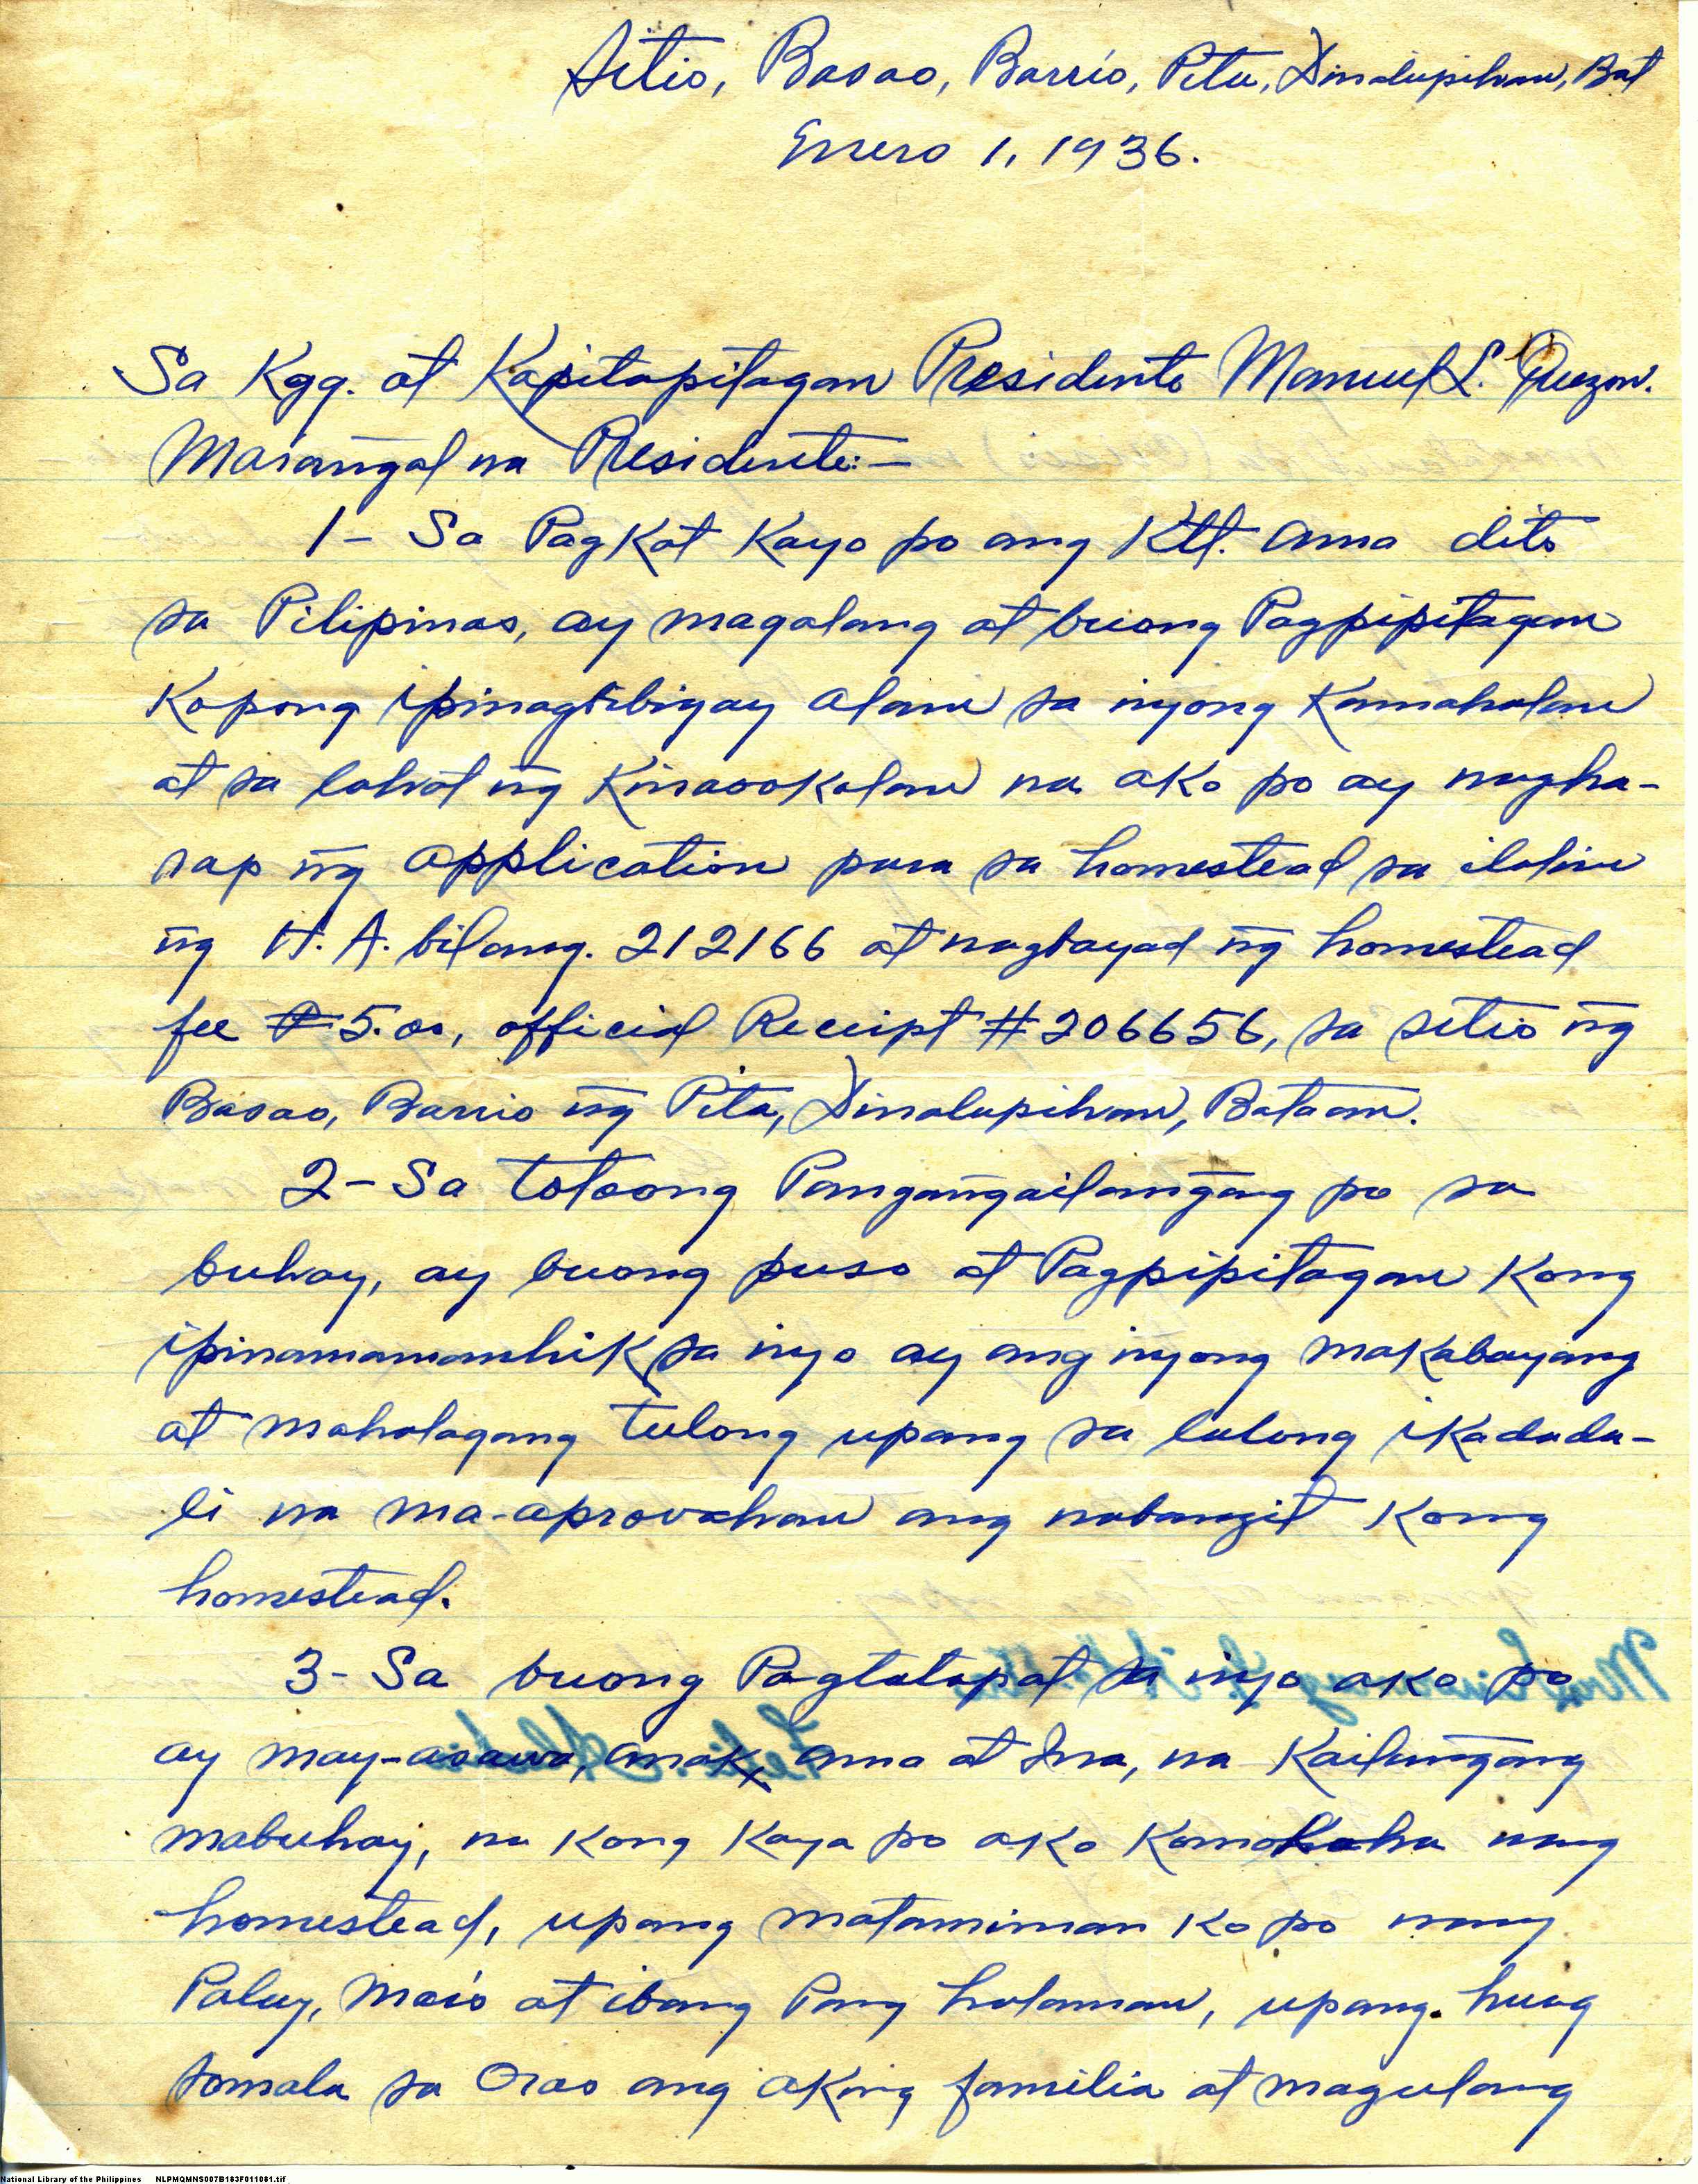 Sitio, Basao, Barrio, Pita, Dinalupihan, Bat
Enero 1, 1936.
Sa Kgg. at Kapitapitagan Presidente Manuel L. Quezon.
Marangal na Presidente:—
1- Sa Pagkat Kayo po ang Ktt. ama dito
sa Pilipinas, ay magalang at buong Pagpipitagan
Kopong ipinagbibigay alam sa inyong Kamahalan
at sa lahat ñg Kinasokolan na ako po ay nagha-
rap ñg application para sa homestead sa ilalim
ñg H. A. bilang. 212166 at nagbayad ñg homestead
fee ₱5.00, official Receipt #206656, sa sitio ñg
Basao, Barrio ñg Pita, Dinalupihan, Bataan.
2- Sa totoong Pangañgailañgang po sa
buhay, ay buong puso at Pagpipitagan Kong
ipinamamanhik sa inyo ay ang inyong makabayang
at mahalagang tulong upang sa lalong ikadada-
li na ma-aprovahan ang nabangit Kong
homestead.
3- Sa buong Pagtatapat sa inyo ako po
ay may-asawa, anak, ama at Ina, na Kailañgang
mabuhay, na kong Kaya po ako Komokoha nang
homestead, upang mataniman ko po nang
Palay, Mais at ibang Pang halaman, upang. huag
somala sa Oras ang aking familia at magulang
National Library of the Philippines NLPMQMNS007B183F011081.tif